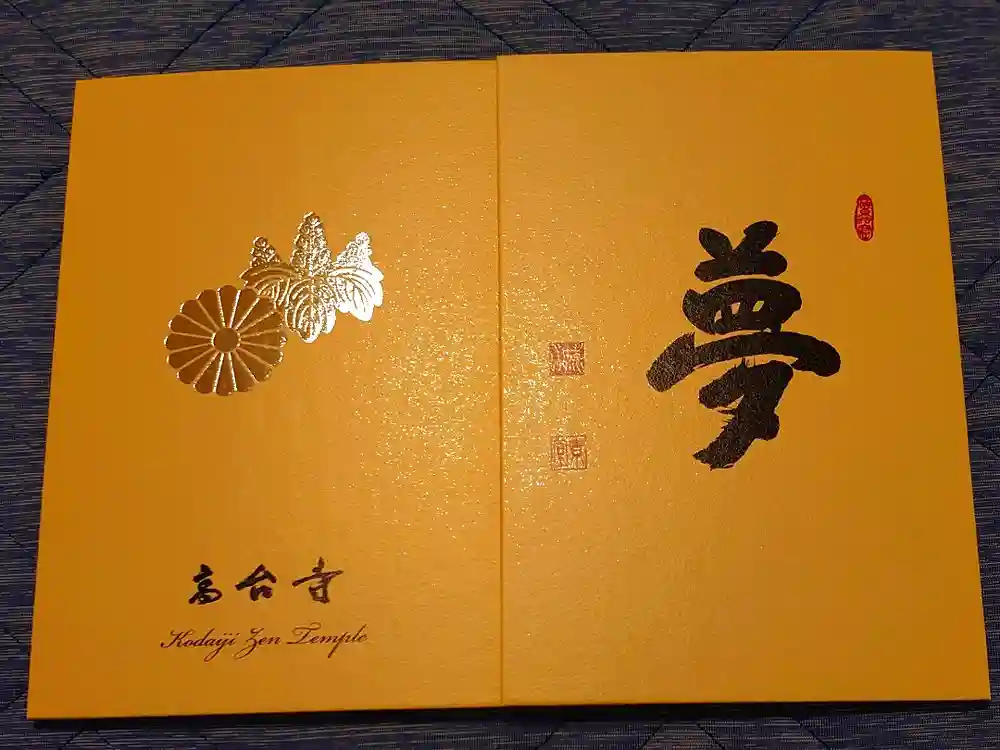 高台寺
Kodaiji Zen Temple
夢